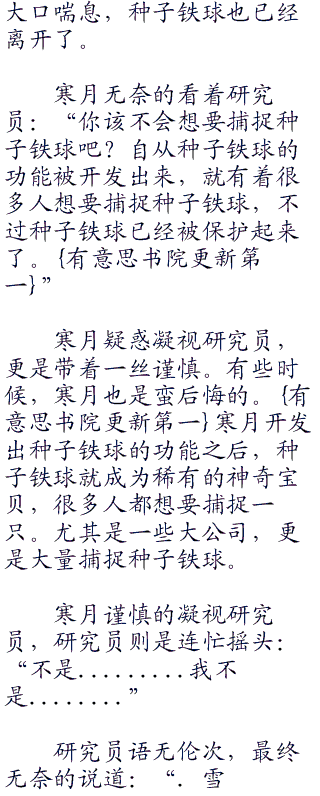 大口喘息，种子铁球也已经
离开了。
寒月无奈的看着研究
员：“你该不会想要捕捉种
子铁球吧？自从种子铁球的
功能被开发出来，就有着很
多人想要捕捉种子铁球，不
过种子铁球已经被保护起来
了。{有意思书院更新第
一}”
寒月疑惑凝视研究员，
更是带着一丝谨慎。有些时
候，寒月也是蛮后悔的。{有
意思书院更新第一}寒月开发
出种子铁球的功能之后，种
子铁球就成为稀有的神奇宝
贝，很多人都想要捕捉一
只。尤其是一些大公司，更
是大量捕捉种子铁球。
寒月谨慎的凝视研究
员，研究员则是连忙摇头：
“不是.........我不
是........”
研究员语无伦次，最终
无奈的说道：“．雪